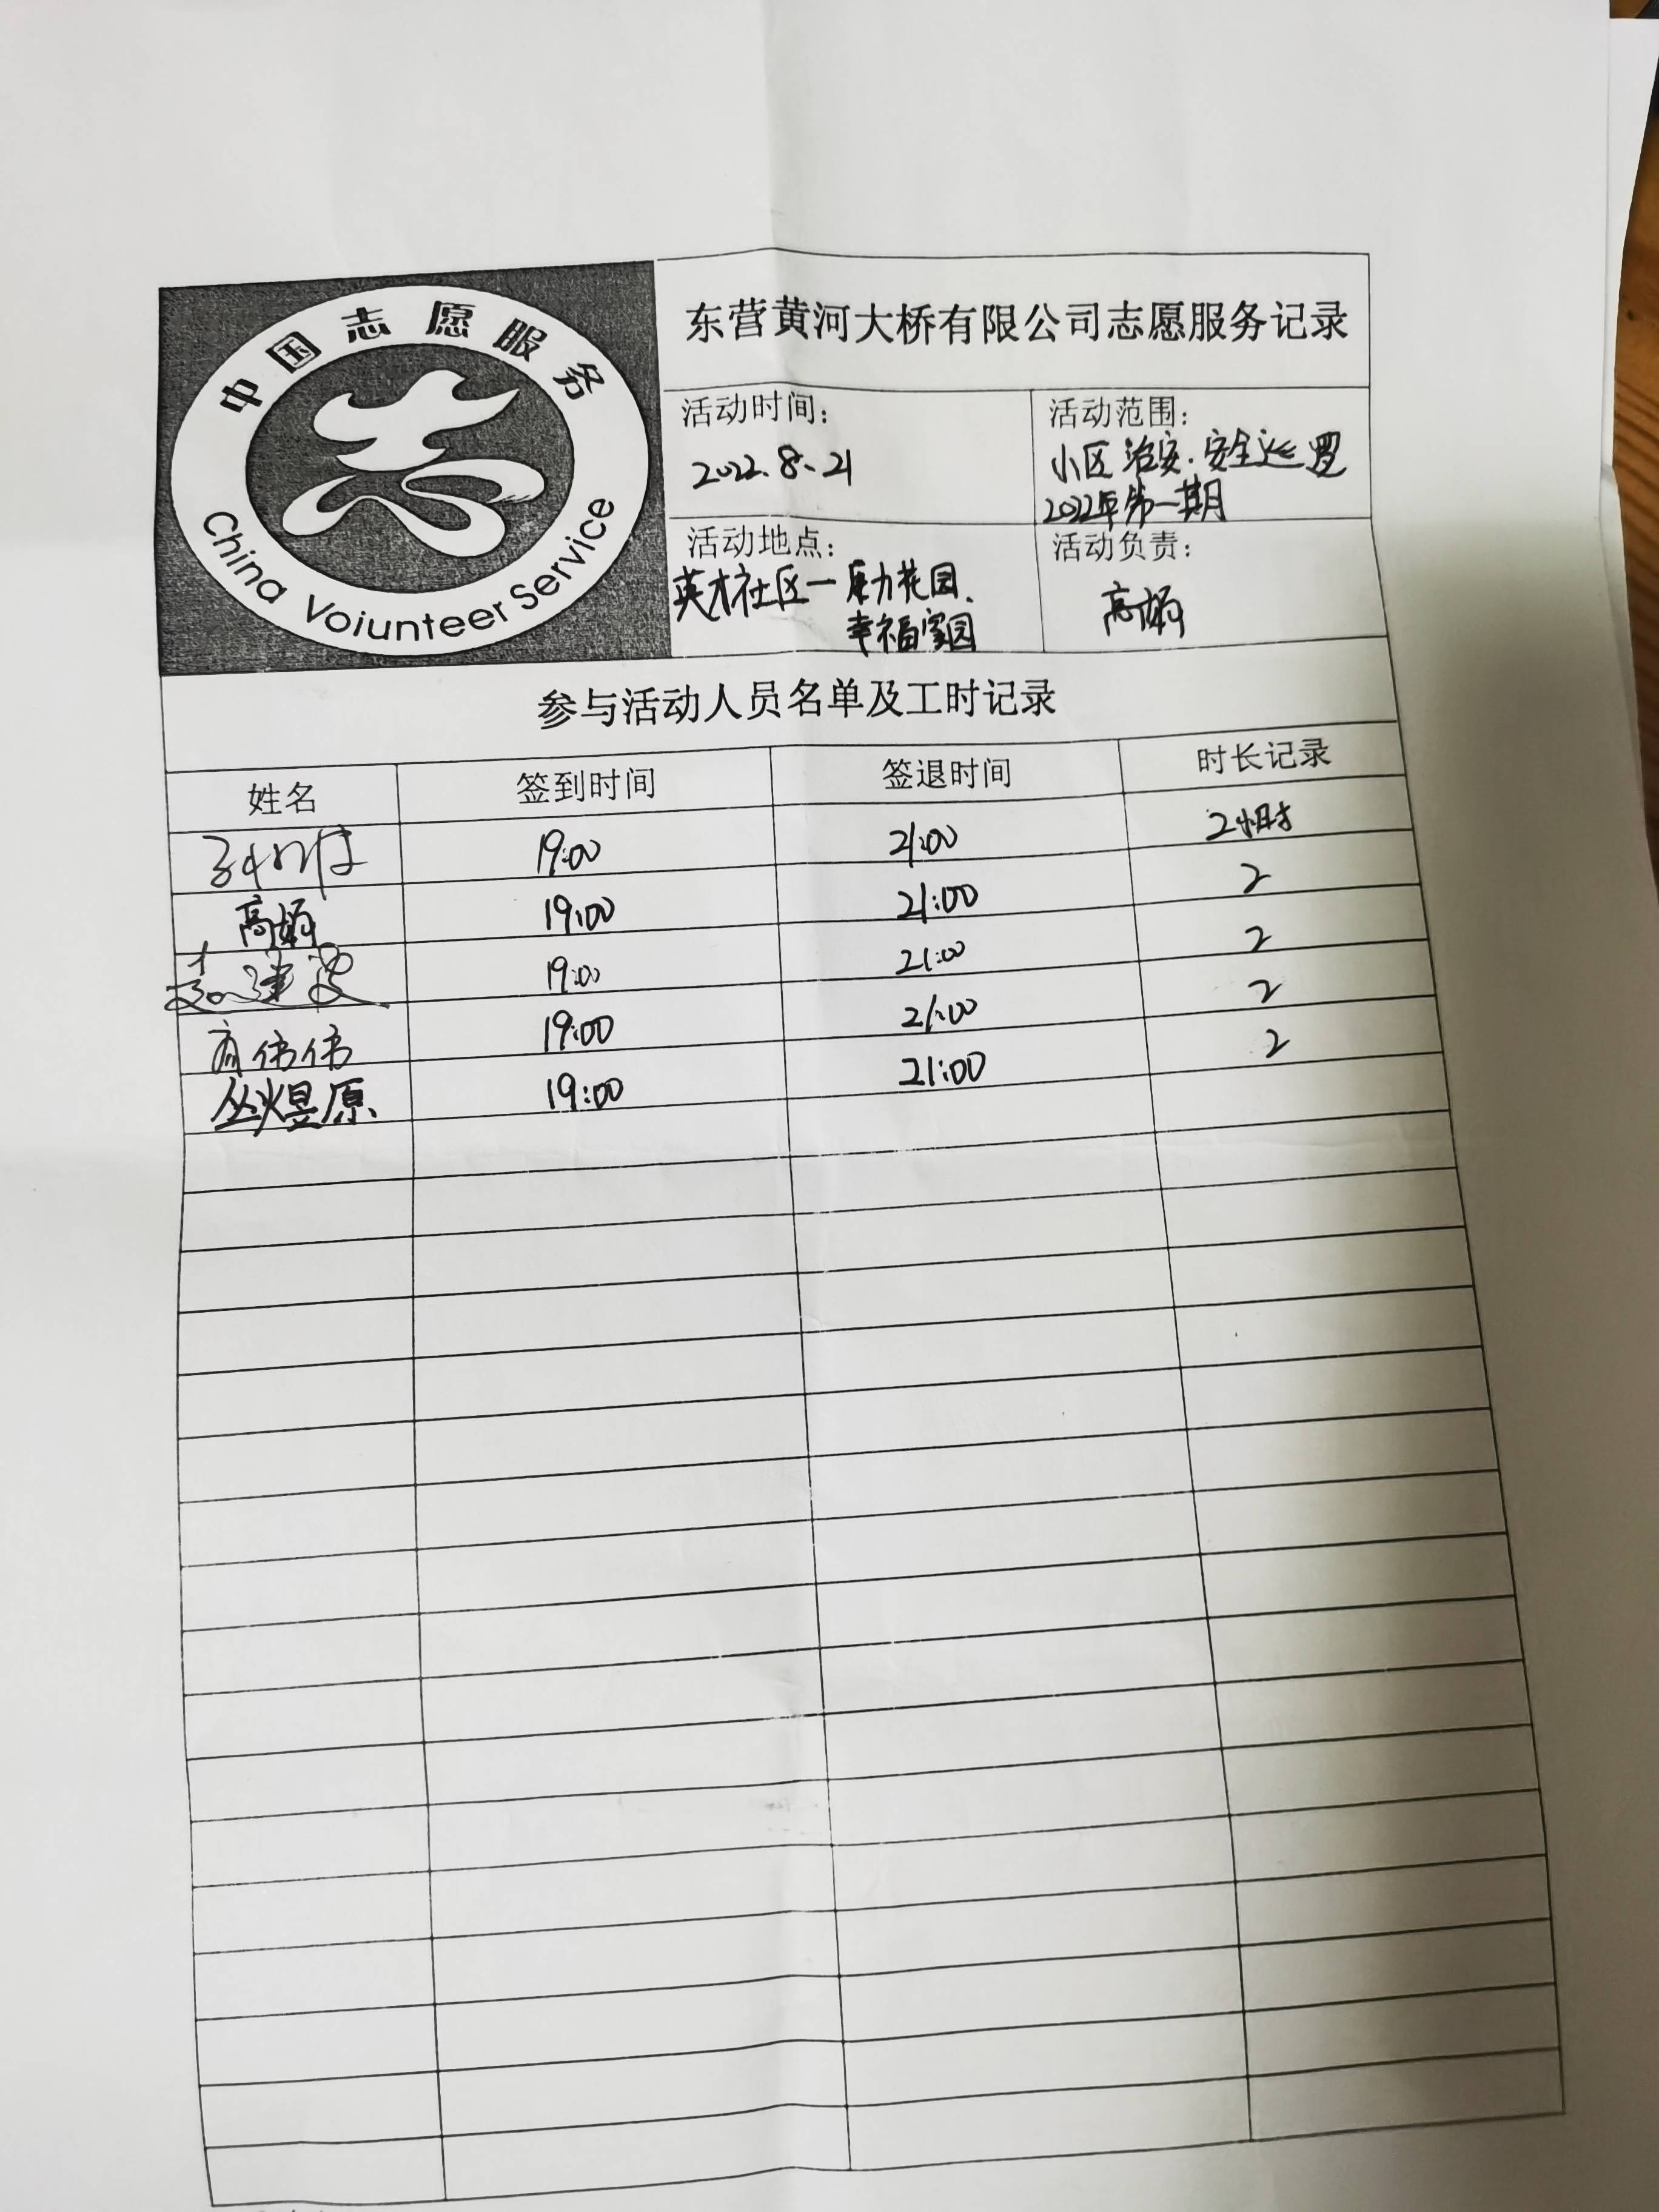 中国志愿服务
China Voiunteer Service
东营黄河大桥有限公司志愿服务记录
活动时间:
2022.8.21
活动范围:
小区治安.安全巡逻
2022年第一期
活动地点:
英才社区一原力花园、
幸福家园
活动负责:
高娟
参与活动人员名单及工时记录
姓名 签到时间 签退时间 时长记录
19:00 21:00 2小时
高娟 19:00 21:00 2
建波 19:00 21:00 2
伟伟 19:00 21:00 2
丛煜原 19:00 21:00 2